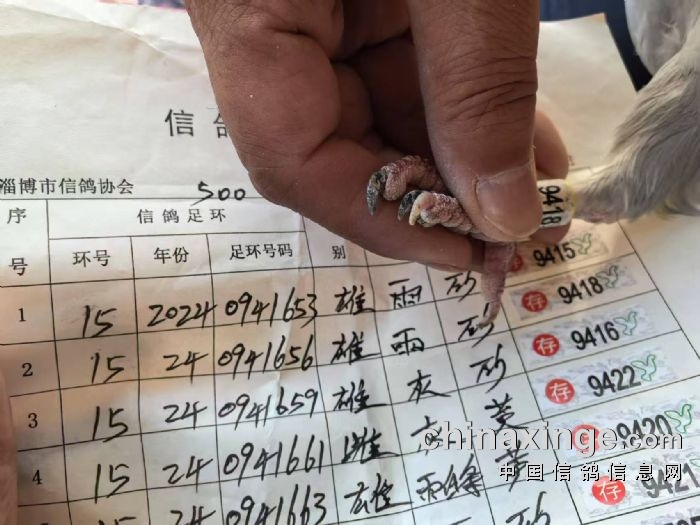 信鸽
淄博市信鸽协会 500
序号 信鸽足环 别
环号 年份 足环号码
9418
存 9415
1 15 2024 0941653 雄 雨 砂 存 9418
2 15 24 0941656 雄 雨 砂 存 9416
3 15 24 0941659 雄 灰 砂 存 9422
4 15 24 0941661 雌 黄 存 9420
15 24 0941663 雄 雨 砂 存 9421
chinaxinge.com
中国信鸽信息网